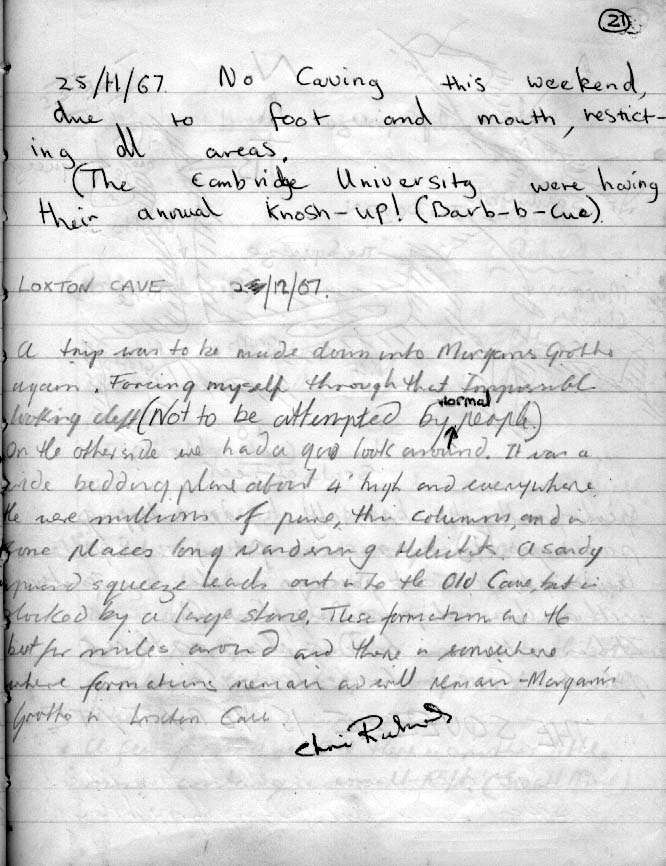 21
25/11/67. No Caving this weekend,
due to foot and mouth, restict-
ing all areas.
(The Cambridge University were having
their annual Knosh-up! (Barb-b-Cue)
LOXTON CAVE /12/67.
A trip was to be made down into Morgans Grotto
again. Forcing myself through that Impossible
looking cleft (Not to be attempted by normal people.)
On the otherside we had a good look around. It was a
wide bedding plane about 4" high and everywhere
were millions of pure, thin columns, and in
some places long wandering Helictits. A sandy
upward squeeze leads out into the Old Cave, but is
blocked by a large stone. These formation are the
best for miles around and there is somewhere
where formations remain and will remain - Morgan's
Grotto in Loxton Cave.
Chris Richards